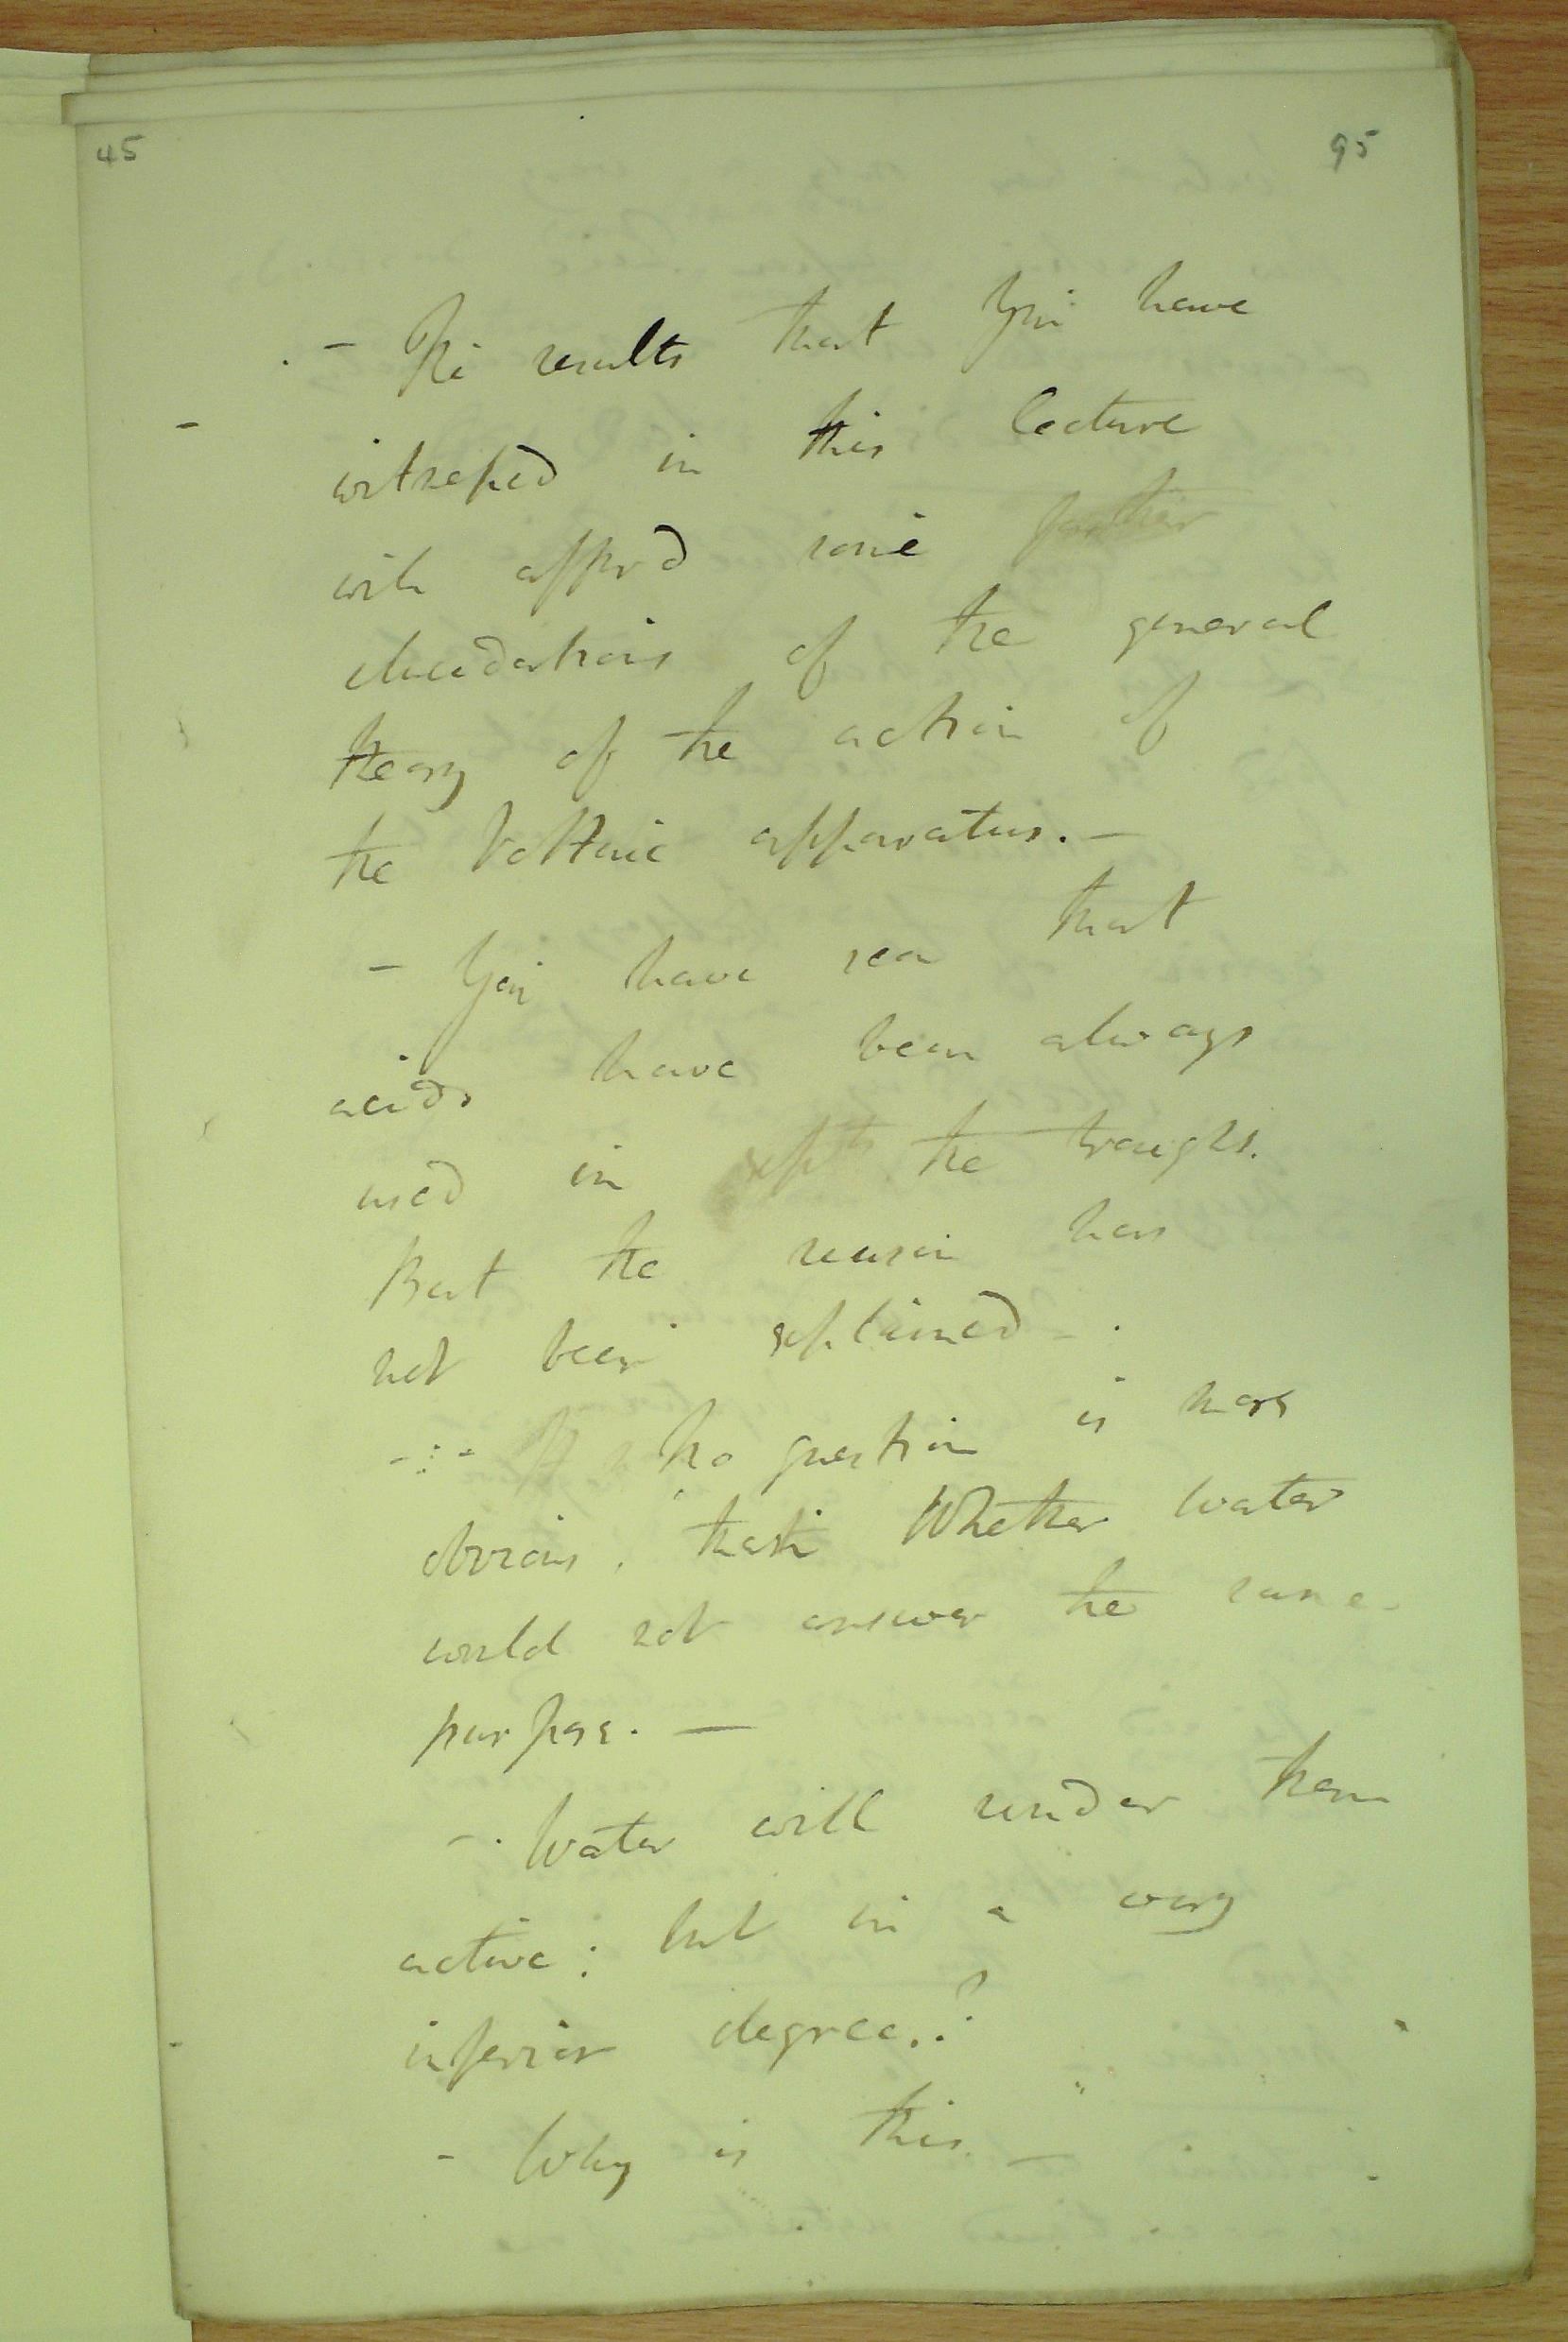 45 95
. - The results that you have
witnessed in this lecture
will afford some further
elucidations of the general
theory of the action of
the Voltaic apparatus. -
- You have seen that
acids have been always
used in the troughs.
But the reason has
not been explained - .
- : - No question is more
obvious, than Whether Water
would not answer the same
purpose. -
- . Water will render them
active: but in a very
inferior degree.?
- Why is this -